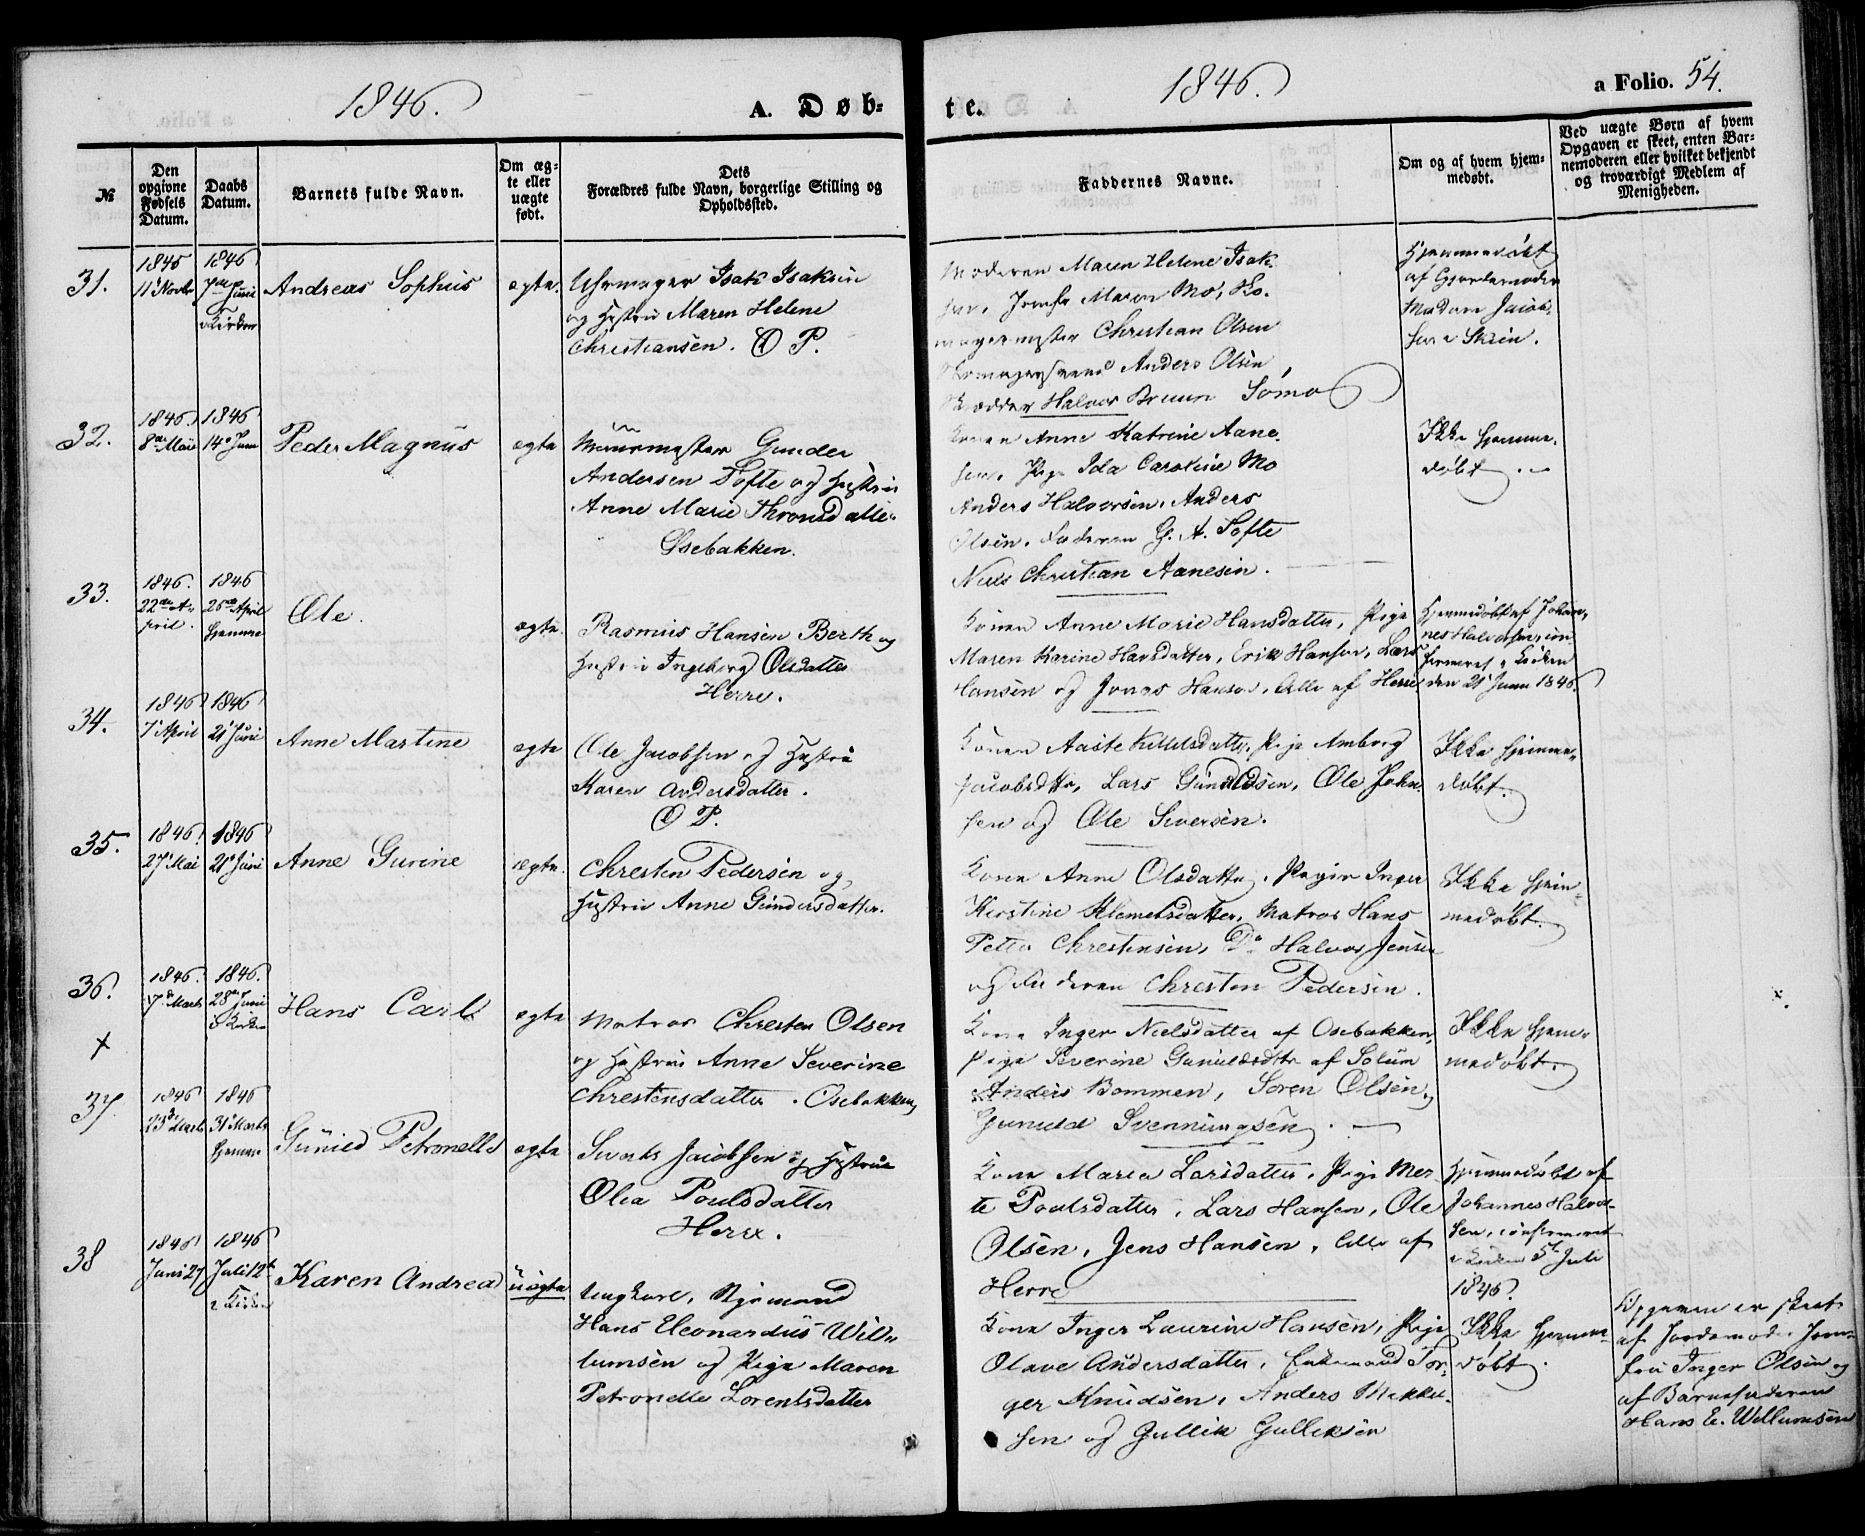 1846.
A. Døb-
№
Den opgivne Fødsels Datum.
Daabs Datum.
Barnets fulde Navn.
Om ægte eller uægte født.
Dets Forældres fulde Navn, borgerlige Stilling og Opholdssted.
31.
1845 11' Novbr
1846 7de Junii
Andreas Sophus
ægte.
Uhrmager Isak Isaksen
og Hustru Maren Helene
Christiansen. O P.
32.
1846 8de Mai
1846 14de Juni
Peder Magnus
ægte
Muurmester Gunder
Andersen Tofte og Hustru
Anne Marie Thronsdatter
Osebakken.
33.
1846. 22de April.
1846 26de April hjemme
Ole.
ægte.
Rasmus Hansen Berth og
Hustru Ingeborg Olsdatter
Herre.
34.
1846 7' April
1846 21' Juni
Anne Martine
ægte
Ole Jacobsen og Hustru
Karen Andersdatter.
O P.
35.
1846. 27' Mai
1846 21' Juni
Anne Gurine
ægte.
Chresten Pedersen og
Hustru Anne Gundersdatter.
36.
+
1846. 7de Marts
1846. 28de Juni i Kirken
Hans Carl
ægte
Matros Chresten Olsen
og Hustru Anne Severine
Chrestensdatter. Osebakken
37.
1846 23de Marts
1846 31' Marts hjemme
Gunild Petronelle
ægte
Sivert Jacobsen og Hustrue
Olea Poulsdatter
Herre.
38
1846 Juni 27
1846 Juli 12te i Kirken
Karen Andrea
uægte
Ungkarl, Styrmand
Hans Eleonardus Wil-
lumsen og Pige Maren
Petronelle Lorentsdatter
te.
1846.
a Folio. 54.
Faddernes Navne.
Om og af hvem hjemmedøbt.
Ved uægte Børn af hvem Opgaven er skeet, enten Barnemoderen eller hvilket bekjendt og troværdigt Medlem af Menigheden.
Moderen Maren Helene Isak-
sen, Jomfr Maren Mo, Sko-
magermester Christian Olsen
Skomagersvend Anders Olsen
Skrædder Halvor Bruun Tømo
Hjemmedøbt
af Gjordemoder
Madam Jacob-
sen i Skien.
Konen Anne Katrine Aane-
sen, Pige Ida Caroline Mo
Anders Halvorsen, Anders
Olsen, Faderen G. A. Tofte
Niels Christian Aanesen.
Ikke hjemme-
døbt.
Konen Anne Marie Hansdatter, Pige
Maren Karine Hansdatter, Erik Hansen, Lars
Hansen og Jonas Hansen, Alle af Herre
Hjemmedøbt af Johan-
nes Halvorsen, con
firmeret i Kirken
den 21' Juni 1846.
Konen Aaste Kittilsdatter, Pige Amborg
Jacobsdtr, Lars Gunuldsen, Ole John-
sen og Ole Siversen.
Ikke hjemme-
døbt.
Kone Anne Olsdatter, Pigen Inger
Kirstine Klemetsdatter, Matros Hans
Petter Chrestensen, Do Halvor Jensen
og Faderen Chresten Pedersen.
Ikke hjem-
medøbt.
Kone Inger Nielsdatter af Osebakken,
Pige Severine Gunuldsdtr af Solum
Anders Bommen, Søren Olsen,
Gunuld Svennungsen.
Ikke hjem-
medøbt.
Kone Maria Larsdatter, Pige Mer-
te Poulsdatter, Lars Hansen, Ole
Olsen, Jens Hansen, Alle af
Herre
Hjemmedøbt af
Johannes Halvor-
sen, confirmeret
i Kirken 5te Juli
1846.
Kone Inger Laurine Hansen, Pige
Olave Andersdatter, Enkemand Tor-
ger Knudsen, Anders Mikkel-
sen og Gullik Gulliksen
Ikke hjemme-
døbt.
Opgaven er skeet
af Jordemoder Jom-
fru Inger Olsen og
af Barnefaderen
Hans E. Willumsen